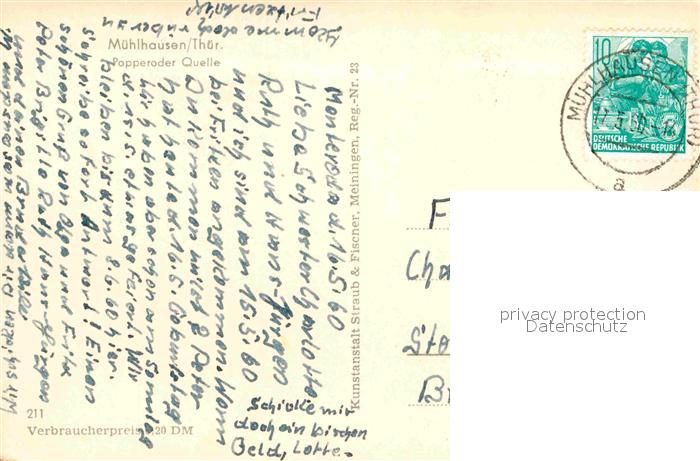 Mühlhausen/Thür.
Popperoder Quelle
Kunstanstalt Straub & Fischer, Meiningen, Reg.-Nr. 23
211
Verbraucherpreis 0,20 DM
10
DEUTSCHE
DEMOKRATISCHE REPUBLIK
MÜHLHAUSEN
privacy protection
Datenschutz
d. 16.5.60
Liebe Schwester Charlotte
Ruth und Hans-Jürgen
und ich sind am 15.5.60
bei angekommen. Wann
Du kommen willst? Peter
hat heute d. 16.5. Geburtstag
Wir haben aber schon am Sonntag
d. 15.5. etwas gefeiert. Wir
bleiben bis zum 8.6.60 hier.
Schreibe sofort Antwort! Einen
schönen Gruß von Olga und Fritz
Peter Brigitte Ruth Hans-Jürgen
und deinen Bruder
Komme doch rüber zu
Schicke mir
doch ein bischen
Geld, Lotte.
F
Cha
Sta
B